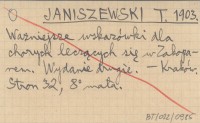 JANISZEWSKI T. 1903.
Ważniejsze wskazówki dla
chorych leczących się w Zakopa-
nem. Wydanie drugie. — Kraków.
Stron 32, 8° mała.